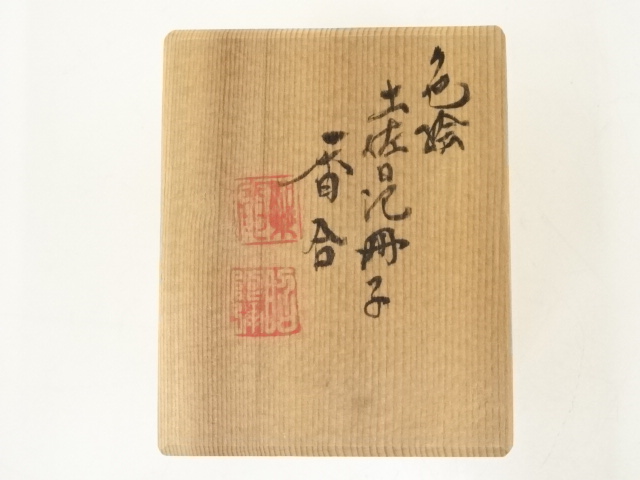 色絵
土佐日記冊子
香合